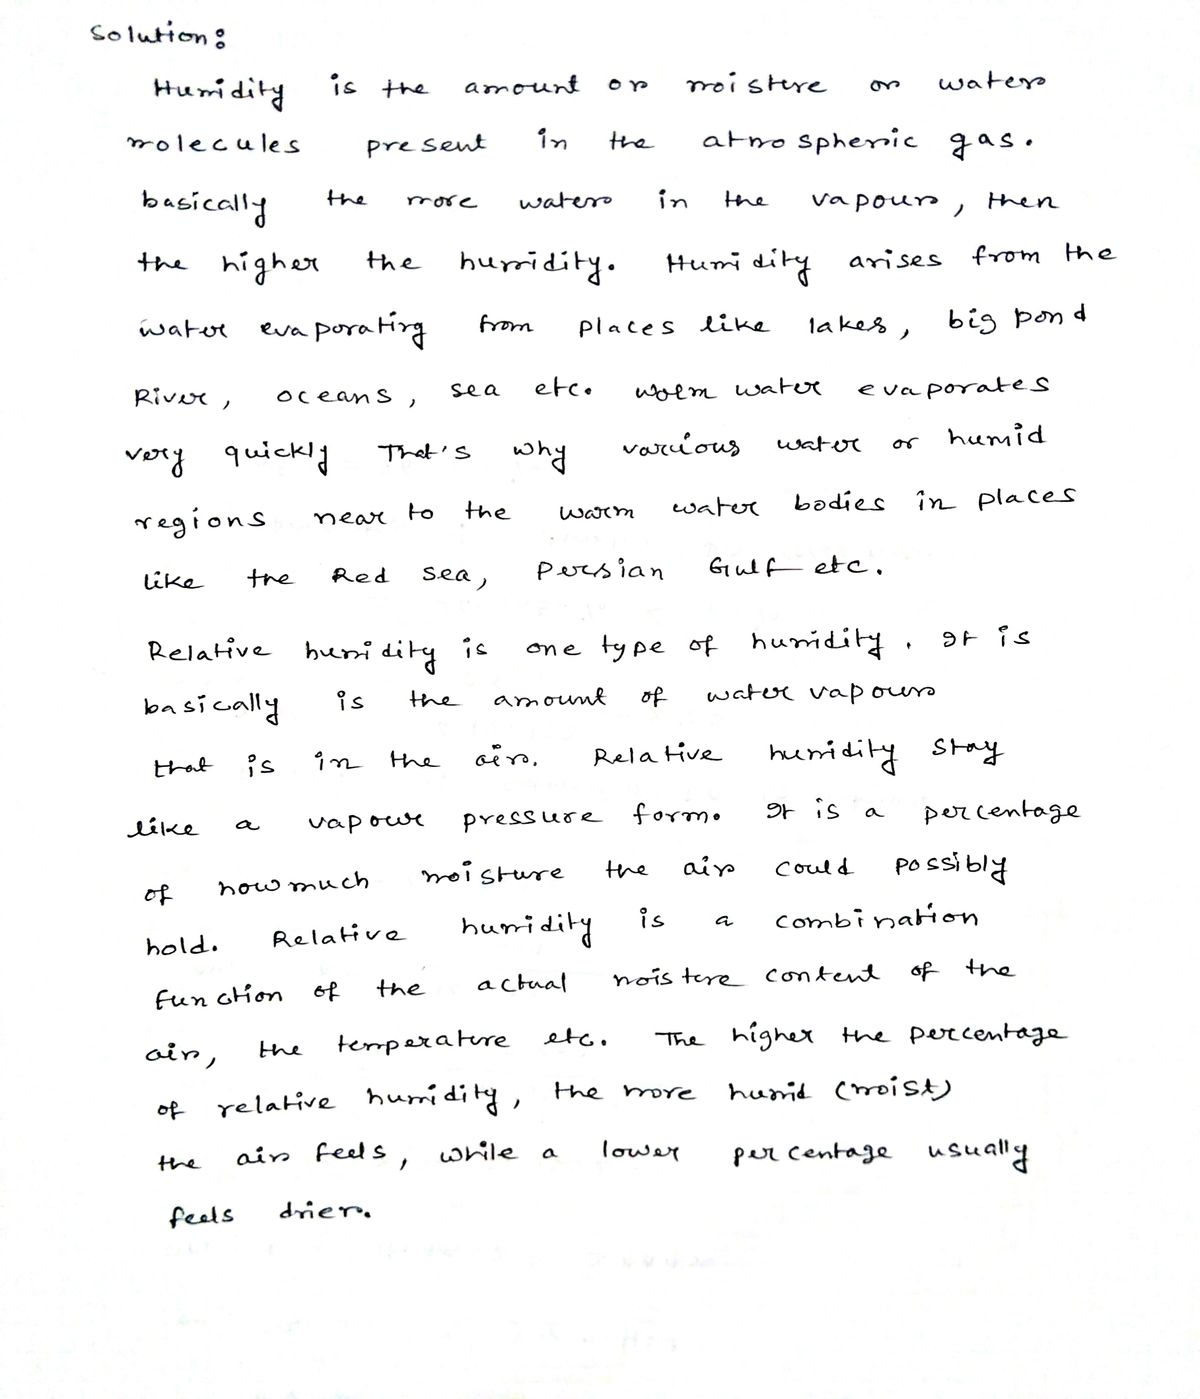 Solution:
Humidity is the amount or moisture or water
molecules present in the atmospheric gas.
basically the more water in the vapour, then
the higher the humidity. Humidity arises from the
water evaporating from places like lakes, big pond
River, oceans, sea etc. warm water evaporates
very quickly That's why various water or humid
regions near to the warm water bodies in places
like the Red sea, Persian Gulf etc.
Relative humidity is one type of humidity. It is
basically is the amount of water vapour
that is in the air. Relative humidity stay
like a vapour pressure form. It is a percentage
of how much moisture the air could possibly
hold. Relative humidity is a combination
function of the actual moisture content of the
air, the temperature etc. The higher the percentage
of relative humidity, the more humid (moist)
the air feels, while a lower percentage usually
feels drier.